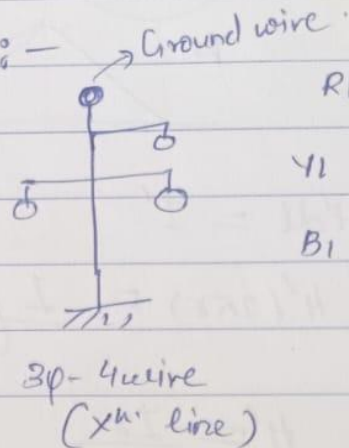 :-
Ground wire
R
Y1
B1
3φ-4wire
(Xn. line)